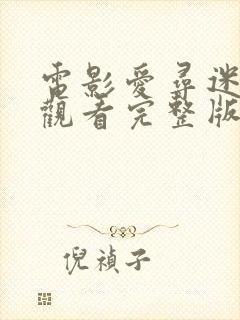 電影愛尋迷
觀看完整版
倪禎子